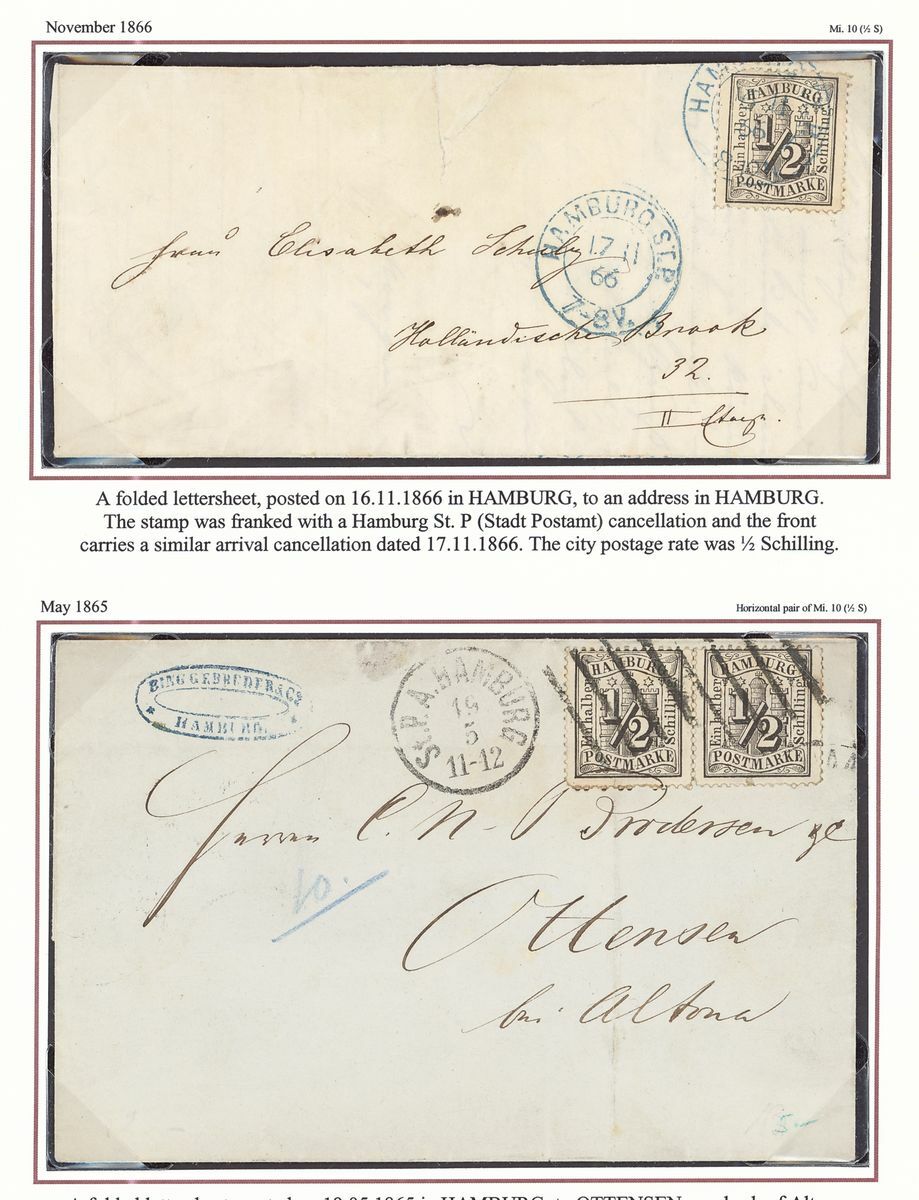 November 1866
Mi. 10 (½ S)
HAMBURG
Ein halber
1/2
Schilling
POSTMARKE
HAMBURG ST.P.
17 11
66
7-8V.
Frau Elisabeth
Holländische Brook
32.
II Etage.
A folded lettersheet, posted on 16.11.1866 in HAMBURG, to an address in HAMBURG.
The stamp was franked with a Hamburg St. P (Stadt Postamt) cancellation and the front
carries a similar arrival cancellation dated 17.11.1866. The city postage rate was ½ Schilling.
May 1865
Horizontal pair of Mi. 10 (½ S)
BING GEBRÜDER & Co
HAMBURG.
St.P.A. HAMBURG
5
11-12
HAMBURG
Ein halber
1/2
Schilling
POSTMARKE
HAMBURG
Ein halber
1/2
Schilling
POSTMARKE
Herren C. N. Brodersen
10.
Ottensen
bei Altona